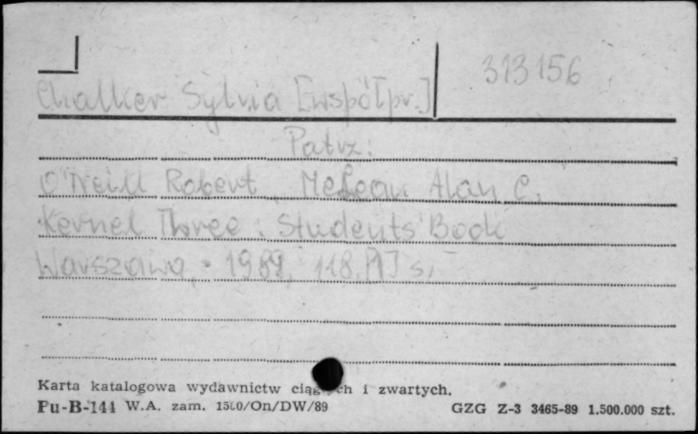 313156
Chalker Sylvia [współpr.]
Patrz:
O'Neill Robert, McLean Alan C.
Kernel Three: Students' Book
Warszawa, 1989, 118,[1] s.
Karta katalogowa wydawnictw ciągłych i zwartych.
Pu-B-144 W.A. zam. /On/DW/89
GZG Z-3 3465-89 1.500.000 szt.